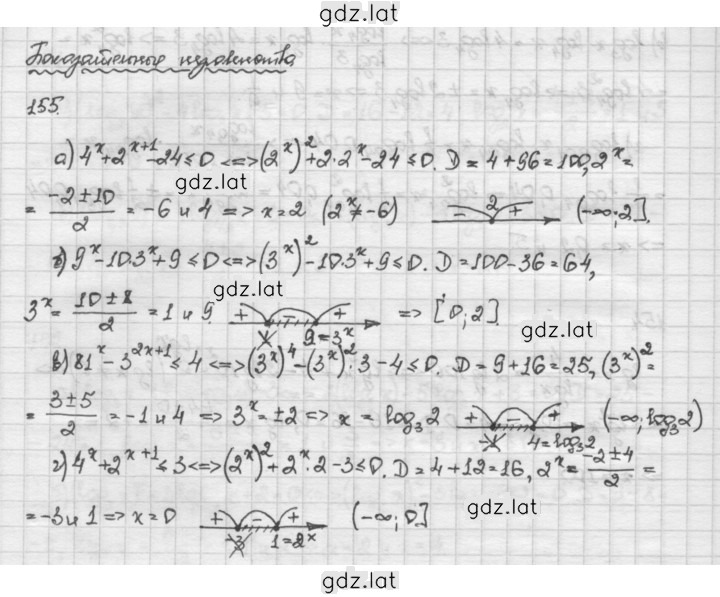 gdz.lat
Показательные неравенства
155.
а) 4^x+2^{x+1}-24≤0 <=> (2^x)^2+2·2^x-24≤0. D=4+96=100, 2^x=
gdz.lat
= \frac{-2±10}{2} = -6 и 4 => x=2 (2^x≠-6) - 2 + (-∞;2].
б) 9^x-10·3^x+9≤0 <=> (3^x)^2-10·3^x+9≤0. D=100-36=64,
gdz.lat
3^x= \frac{10±8}{2} = 1 и 9. + - + 1 9=3^x => [0;2].
gdz.lat
в) 81^x-3^{2x+1}≤4 <=> (3^x)^4-(3^x)^2·3-4≤0. D=9+16=25, (3^x)^2=
= \frac{3±5}{2} = -1 и 4 => 3^x=±2 => x=log_3 2 + - + -1 4=log_3 2 (-∞;log_3 2)
gdz.lat
г) 4^x+2^{x+1}≤3 <=> (2^x)^2+2^x·2-3≤0. D=4+12=16, 2^x= \frac{-2±4}{2} =
gdz.lat
= -3 и 1 => x=0 + - + -3 1=2^x (-∞;0]
gdz.lat